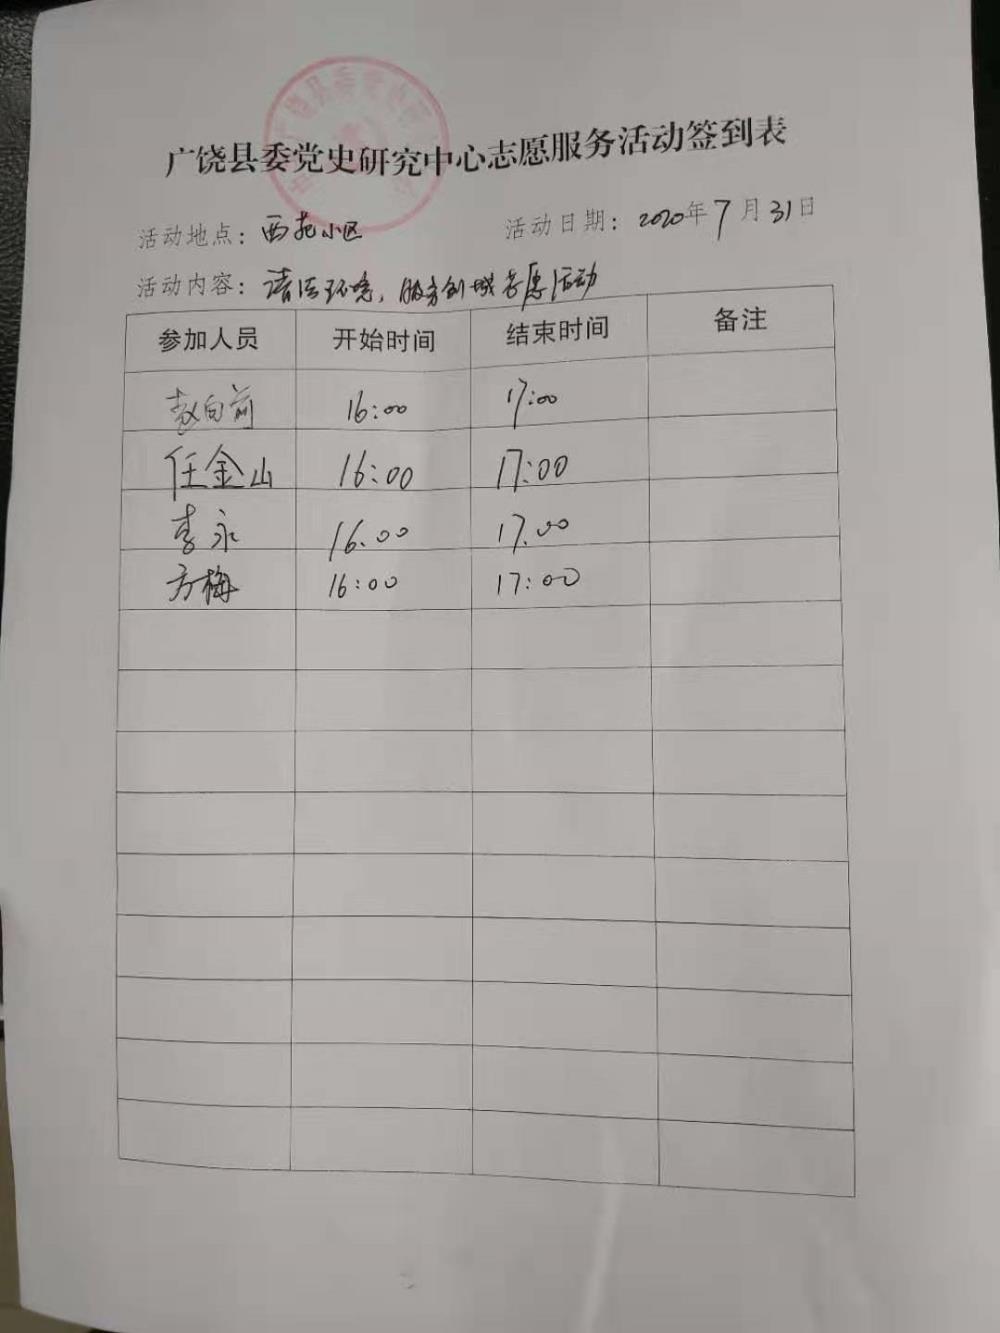 广饶县委党史研究中心志愿服务活动签到表
活动地点：西苑小区 活动日期：2020年7月31日
活动内容：清洁环境，服务创城志愿活动
参加人员 开始时间 结束时间 备注
赵向前 16:00 17:00
任金山 16:00 17:00
李永 16:00 17:00
方梅 16:00 17:00